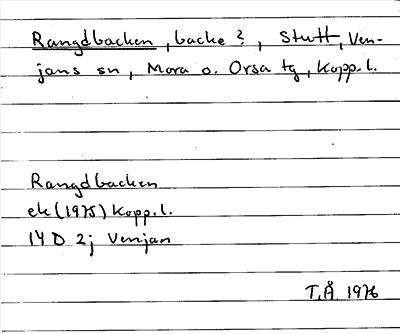 Rangdbacken, backe?, Stutt, Ven-
jans sn, Mora o. Orsa tg, Kopp.l.
Rangdbacken
ek (1975) Kopp.l.
14 D 2j Venjan
T.Å. 1976